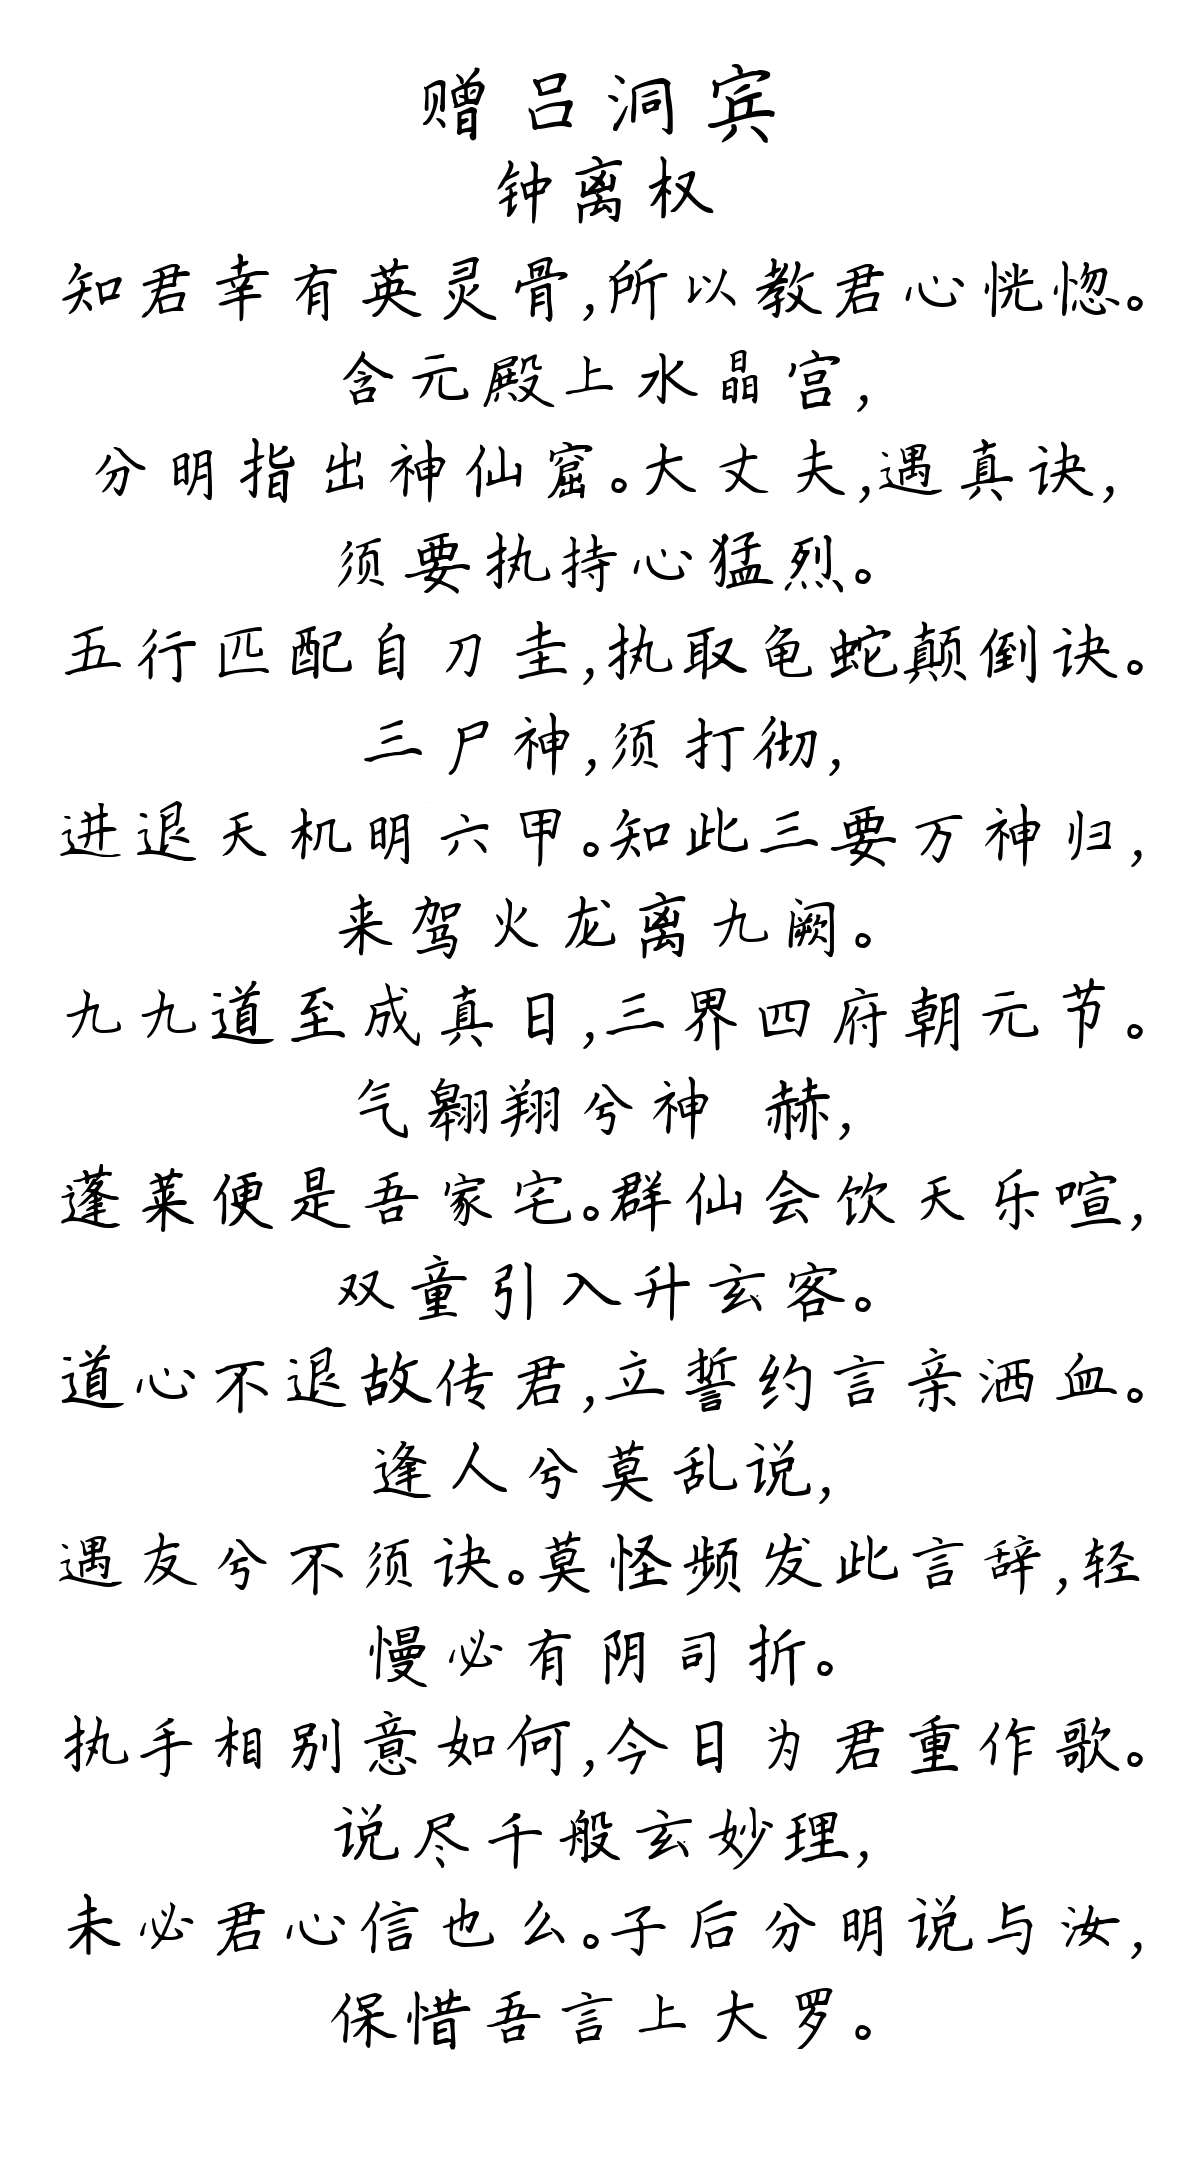 赠吕洞宾
钟离权
知君幸有英灵骨,所以教君心恍惚。
含元殿上水晶宫,
分明指出神仙窟。大丈夫,遇真诀,
须要执持心猛烈。
五行匹配自刀圭,执取龟蛇颠倒诀。
三尸神,须打彻,
进退天机明六甲。知此三要万神归,
来驾火龙离九阙。
九九道至成真日,三界四府朝元节。
气翱翔兮神 赫,
蓬莱便是吾家宅。群仙会饮天乐喧,
双童引入升玄客。
道心不退故传君,立誓约言亲洒血。
逢人兮莫乱说,
遇友兮不须诀。莫怪频发此言辞,轻
慢必有阴司折。
执手相别意如何,今日为君重作歌。
说尽千般玄妙理,
未必君心信也么。子后分明说与汝,
保惜吾言上大罗。